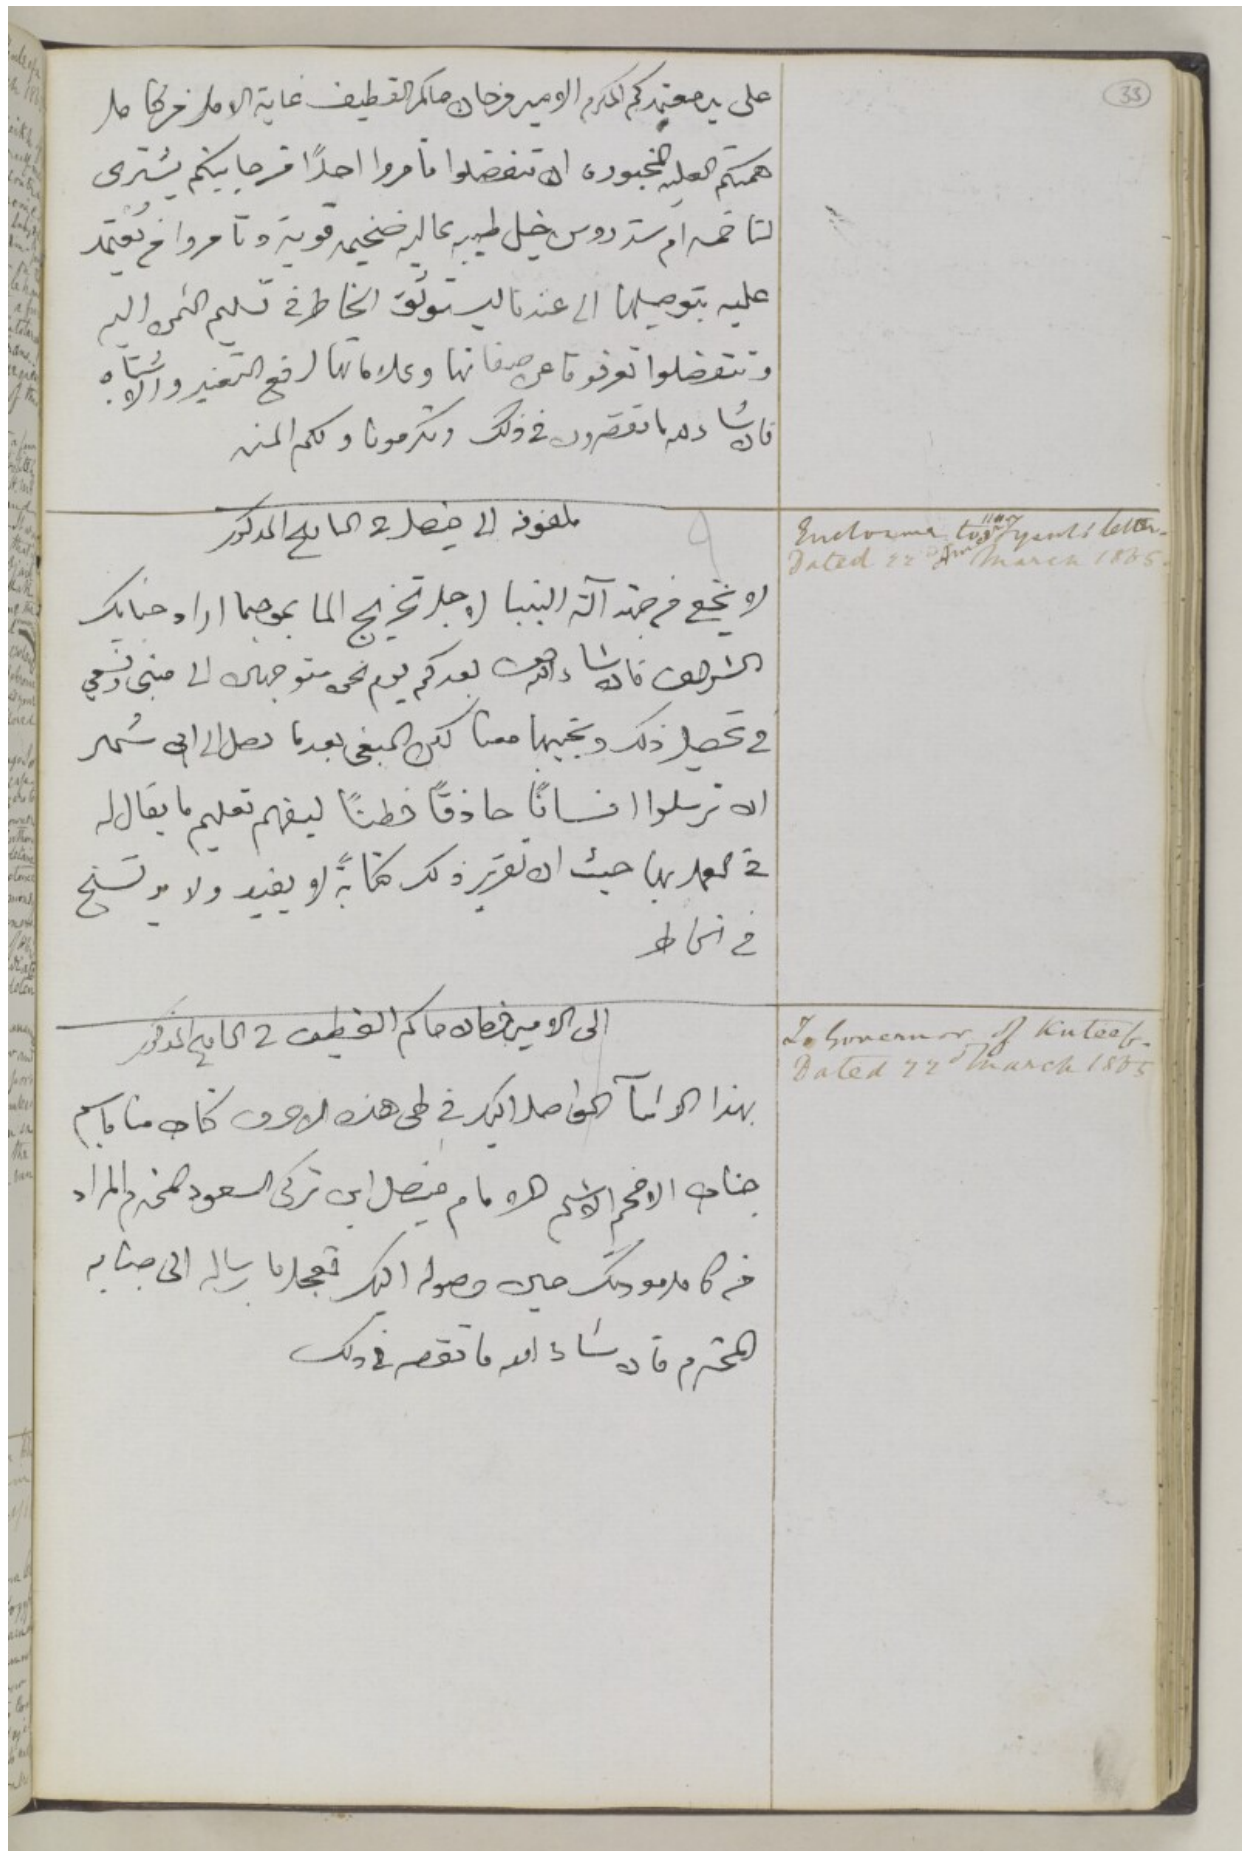 33
على يد معتمدكم المكرم الامير فرحان حاكم القطيف غاية الامل من كامل
همتكم العليه المجبوره ان تتفضلوا تامروا احدًا من جانبكم يشترى
لنا خمسه ام سته روس خيل طيبه عاليه ضخيمه قوية وتامروا من يُعتمد
عليه بتوصيلها الى عندنا ليستوثق الخاطر في تسليم الثمن اليه
وتتفضلوا تعرفونا عن صفاتها وعلاماتها لرفع التغير والاشتباه
فان شاء الله ما تقصرون في ذلك وتكرمونا ولكم المنه
ملفوفه الى فيصل في التاريخ المذكور
Enclosure to Imam Fysul's letter.
Dated 22d March 1865.
لا يخفى من جهة آلة البنبا لاجل تخريج الما بموجبما اراد جنابك
الشريف فان شاء الله بعدكم يوم نحن متوجهين الى منبى ونسعي
في تحصيل ذلك ونجيبها معنا لكن المبغى بعدما نصل الى ابى شهر
ان ترسلوا انسانًا حاذقًا فطنًا ليفهم تعليم ما يقال له
في العمل بها حيث ان تقرير ذلك كتابةً لا يفيد ولا يرتسخ
في الخاطر
الى الامير فرحان حاكم القطيف في التاريخ المذكور
To Governor of Kuteef.
Dated 22d March 1865
بهذا الاثنآ الواصل اليك في طى هذه الاحرف كتاب منا باسم
جناب الافخم الاشيم الامام فيصل ابن تركى السعود المحترم المراد
من كامل مودتك حين وصوله اليك تعجل بارساله الى جنابه
المحترم فان شاء الله ما تقصر في ذلك